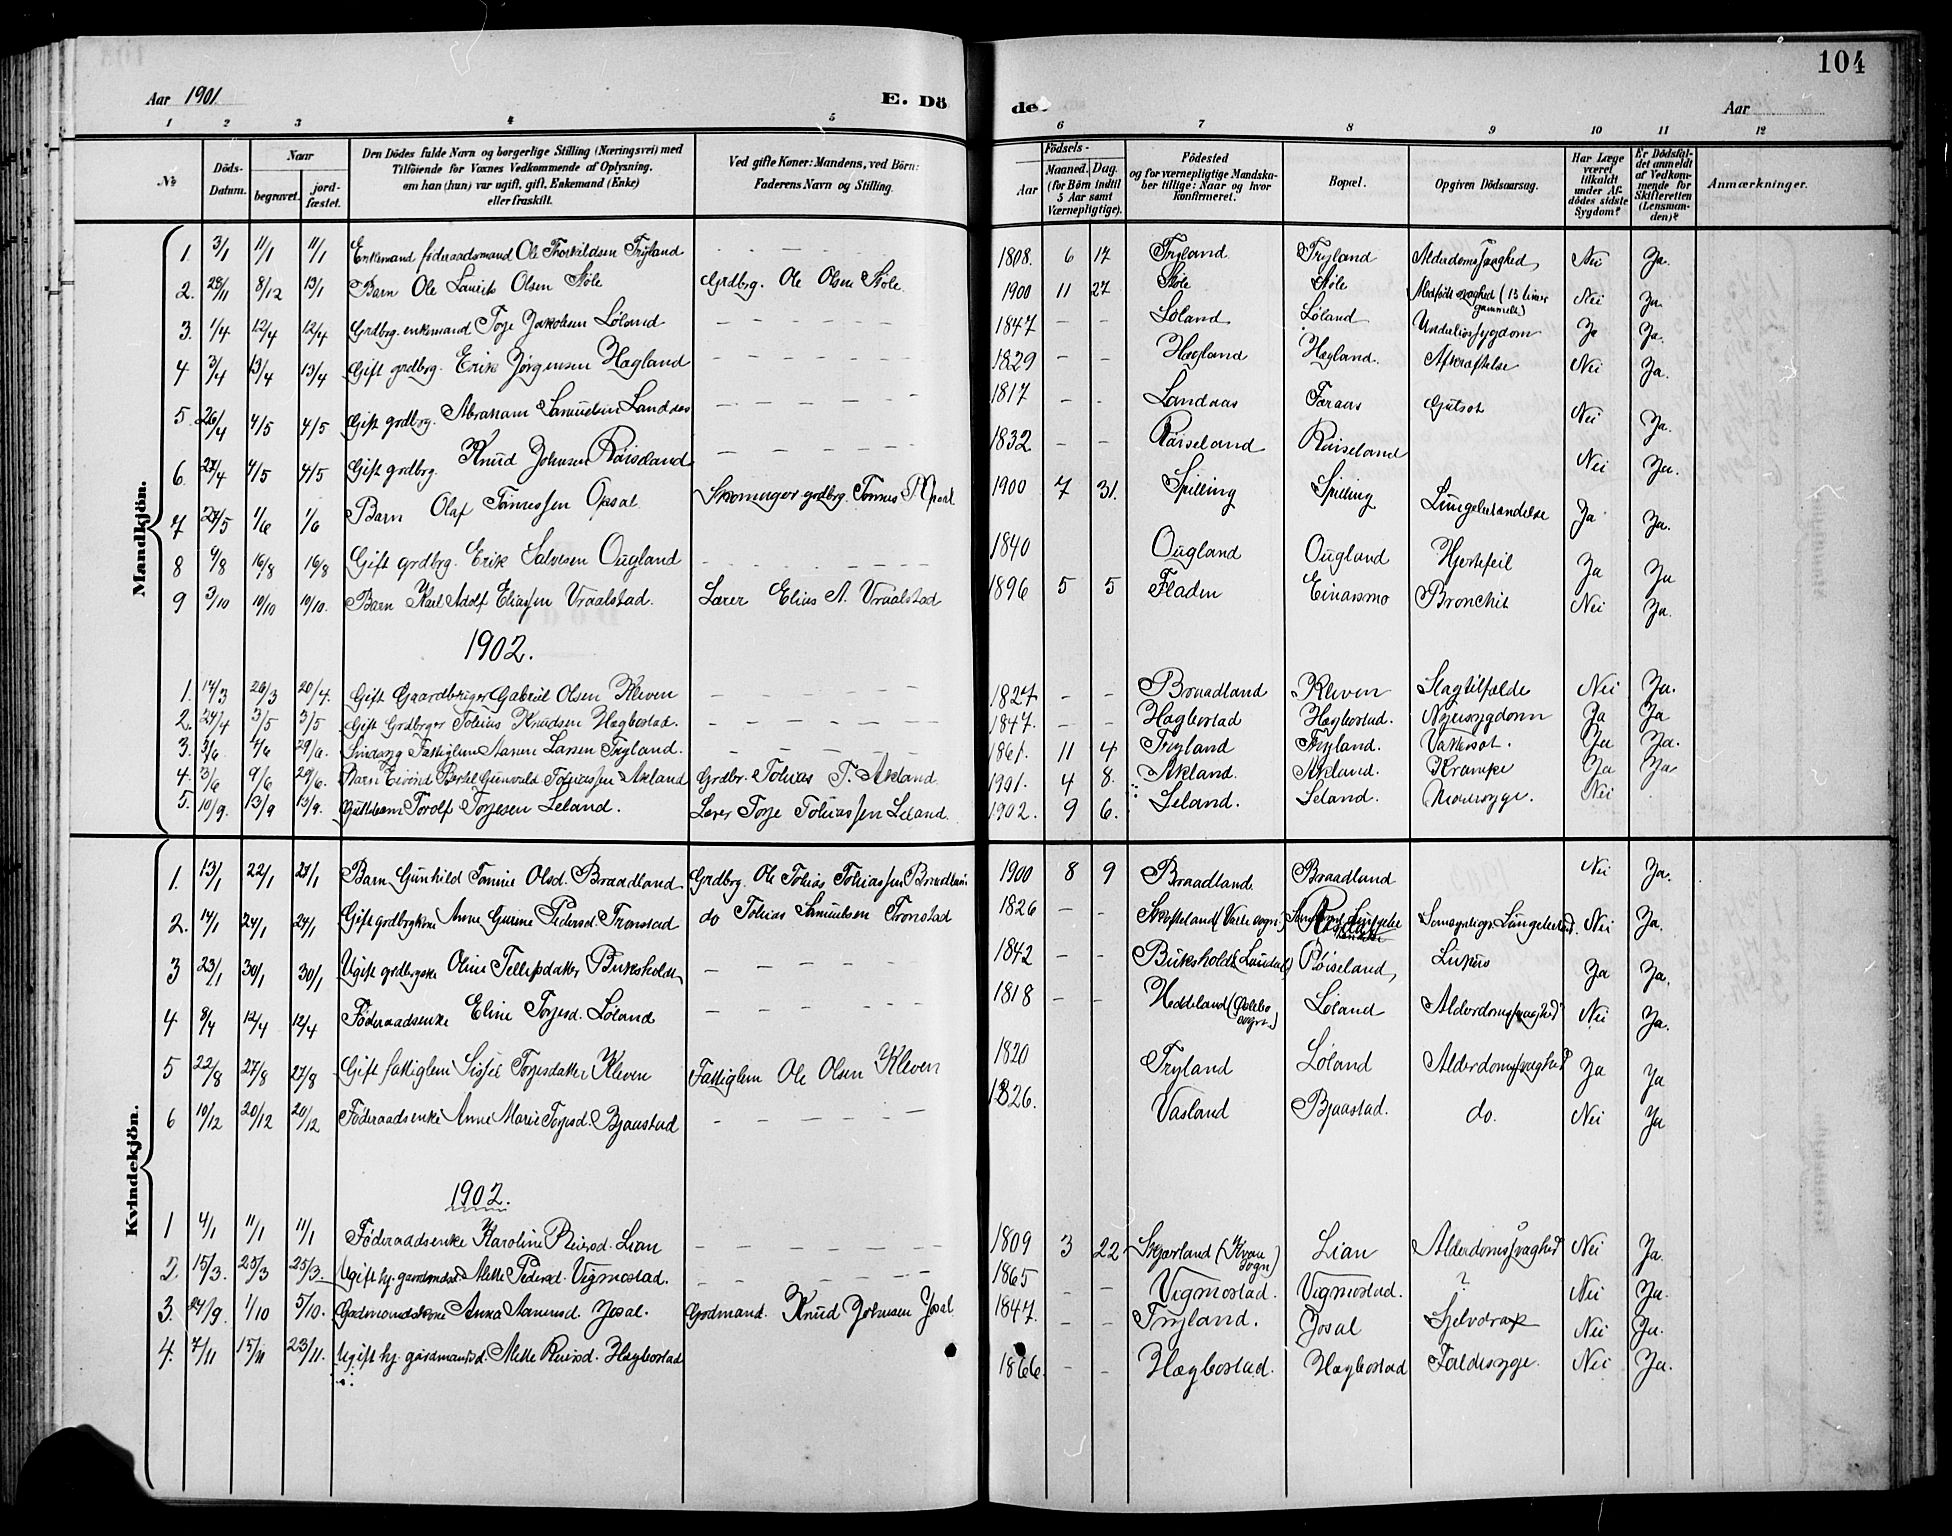 104
Aar 1901.
E. Dö
de.
Aar
1 2 3 4 5 6 7 8 9 10 11 12
No
Döds-Datum.
Naar
begravet.
jord-fæstet.
Den Dödes fulde Navn og borgerlige Stilling (Næringsvei) med
Tilföiende for Voxnes Vedkommende af Oplysning,
om han (hun) var ugift, gift, Enkemand (Enke)
eller fraskilt.
Ved gifte Koner: Mandens, ved Börn:
Faderens Navn og Stilling.
Födsels-
Aar
Maaned. Dag.
(for Börn indtil
5 Aar samt
Værnepligtige).
Födested
og for værnepligtige Mandska-
ber tillige: Naar og hvor
konfirmeret.
Bopæl.
Opgiven Dödsaarsag.
Har Læge
været
tilkaldt
under Af-
dödes sidste
Sygdom?
Er Dödsfal-
det anmeldt
af Vedkom-
mende for
Skifteretten
(Lensman-
den)?
Anmærkninger.
Mandkjön.
1. 3/1 11/1 11/1 Enkemand föderaadsmand Ole Thorkildsen Tryland - - - 1808. 6 17 Tryland Tryland Alderdomssvaghed Nei Ja.
2. 28/11 8/12 13/1 Barn Ole Laurits Olsen Støle Grdbrg. Ole Olsen Støle. 1900 11 27 Støle Støle Medfödt svaghed (13 timer gammelt) Nei Ja.
3. 1/4 12/4 12/4 Grdbrg. enkemand Torje Jakobsen Løland - - - 1847 - - Løland Løland Underlivssygdom Ja Ja.
4 3/4 13/4 13/4 Gift grdbrg. Erik Jørgensen Hægland - - - 1829 - - Hægland Hægland. Afkræftelse Nei Ja.
5. 26/4 4/5 4/5 Gift grdbrg. Abraham Samuelsen Landaas - - - 1817 - - Landaas Faraas Gulsot Nei Ja.
6. 27/4 4/5 4/5 Gift grdbrg. Knud Johnsen Røiseland - - - 1832 - - Røiseland Røiseland Nei Ja.
7 27/5 1/6 1/6 Barn Olaf Tønnessen Opsal Grdbrg. Tønnes 1900 7 31. Spilling Spilling Lungebetændelse Ja Ja.
8 9/8 16/8 16/8 Gift grdbrg. Erik Salvesen Ougland - - - 1840 Ougland Ougland Hjertefeil Ja Ja
9 3/10 10/10 10/10. Barn Karl Adolf Eliassen Vraalstad. Lærer Elias A. Vraalstad 1896 5 5 Fladen Einarsmo Bronchit Nei Ja.
1902.
1. 14/3 26/3 20/4. Gift Gaardbruger Gabriel Olsen Kleven - - - 1827 - - Braadland Kleven Slagtilfælde Nei Ja.
2. 24/4 3/5 3/5 Gift Grdbrger Tobias Knudsen Hægbostad. - - - 1847. - - Hægbostad Hægbostad. Nyresygdom Ja Ja
3. 3/6 4/6 29/6. Sindssyg Fattiglem Aanen Larsen Tryland. - - - 1861. 11 4 Tryland Tryland. Vattersot. Ja Ja.
4. 3/6 9/6 29/6. Barn Eivind Bertel Gunvald Tobiassen Akland Grdbr. Tobias T. Akland 1901. 4 8. Akland. Akland. Krampe Ja Ja
5. 10/9. 13/9 13/9. Guttebarn Torolf Torjesen Leland. Lærer Torje Tobiassen Leland. 1902. 9 6. Leland. Leland. Nei
Kvindekjön.
1. 13/1 22/1 27/1 Barn Gunhild Tomine Olsd. Braadland Grdbrg. Ole Tobias Tobiassen Braadland 1900 8 9 Braadland Braadland Nei Ja.
2. 14/1 24/1 24/1 Gift grdbrgkone Anne Gurine Pedersd. Tronstad do Tobias Samuelsen Tronstad 1826 - - (Valle sogn.) Nei Ja.
3 23/1 30/1 30/1 Ugift grdbrgske Oline Tellefsdatter Buksholdt - - - 1842 - - Buksholdt (Laudal) Røiseland Ja Ja.
4 8/4 12/4 12/4 Føderaadsenke Eline Torjesd. Løland - - - 1818 - - Heddeland (Øslebø sogn.) Løland Alderdomssvaghed Nei Ja.
5 22/8 27/8 27/8 Gift fattiglem Sissel Torjesdatter Kleven Fattiglem Ole Olsen Kleven 1820 Tryland Løland Alderdomssvaghed Ja Ja
6 10/12 20/12 20/12 Føderaadsenke Anne Marie Torjesd. Bjaastad - - - 1826. Vasland Bjaastad. do. Nei Ja
1902.
1 4/1 11/1 11/1 Føderaadsenke Karoline Reiersd. Lian - - - 1809 3 22 Skjævland (Kvaa sogn) Lian Alderdomssvaghed Nei Ja.
2. 15/3. 23/3 25/3. Ugift hj. gaardmdsd. Mette Pedersd. Vigmostad. - - - 1865 - - Vigmostad. Vigmostad. ? Nei Ja.
3. 24/9. 1/10 5/10. Grdmandskone Anna Aanensd. Josal. Grdmand. Knud Johnsen Josal 1847. - - Tryland. Josal Selvdrap Nei Ja.
4. 7/11 15/11 23/11. Ugift hj. gårdmandsd. Mette Reiersd. Hægbostad 1866. - - Hægbostad. Hægbostad Faldesyge. Nei Ja.